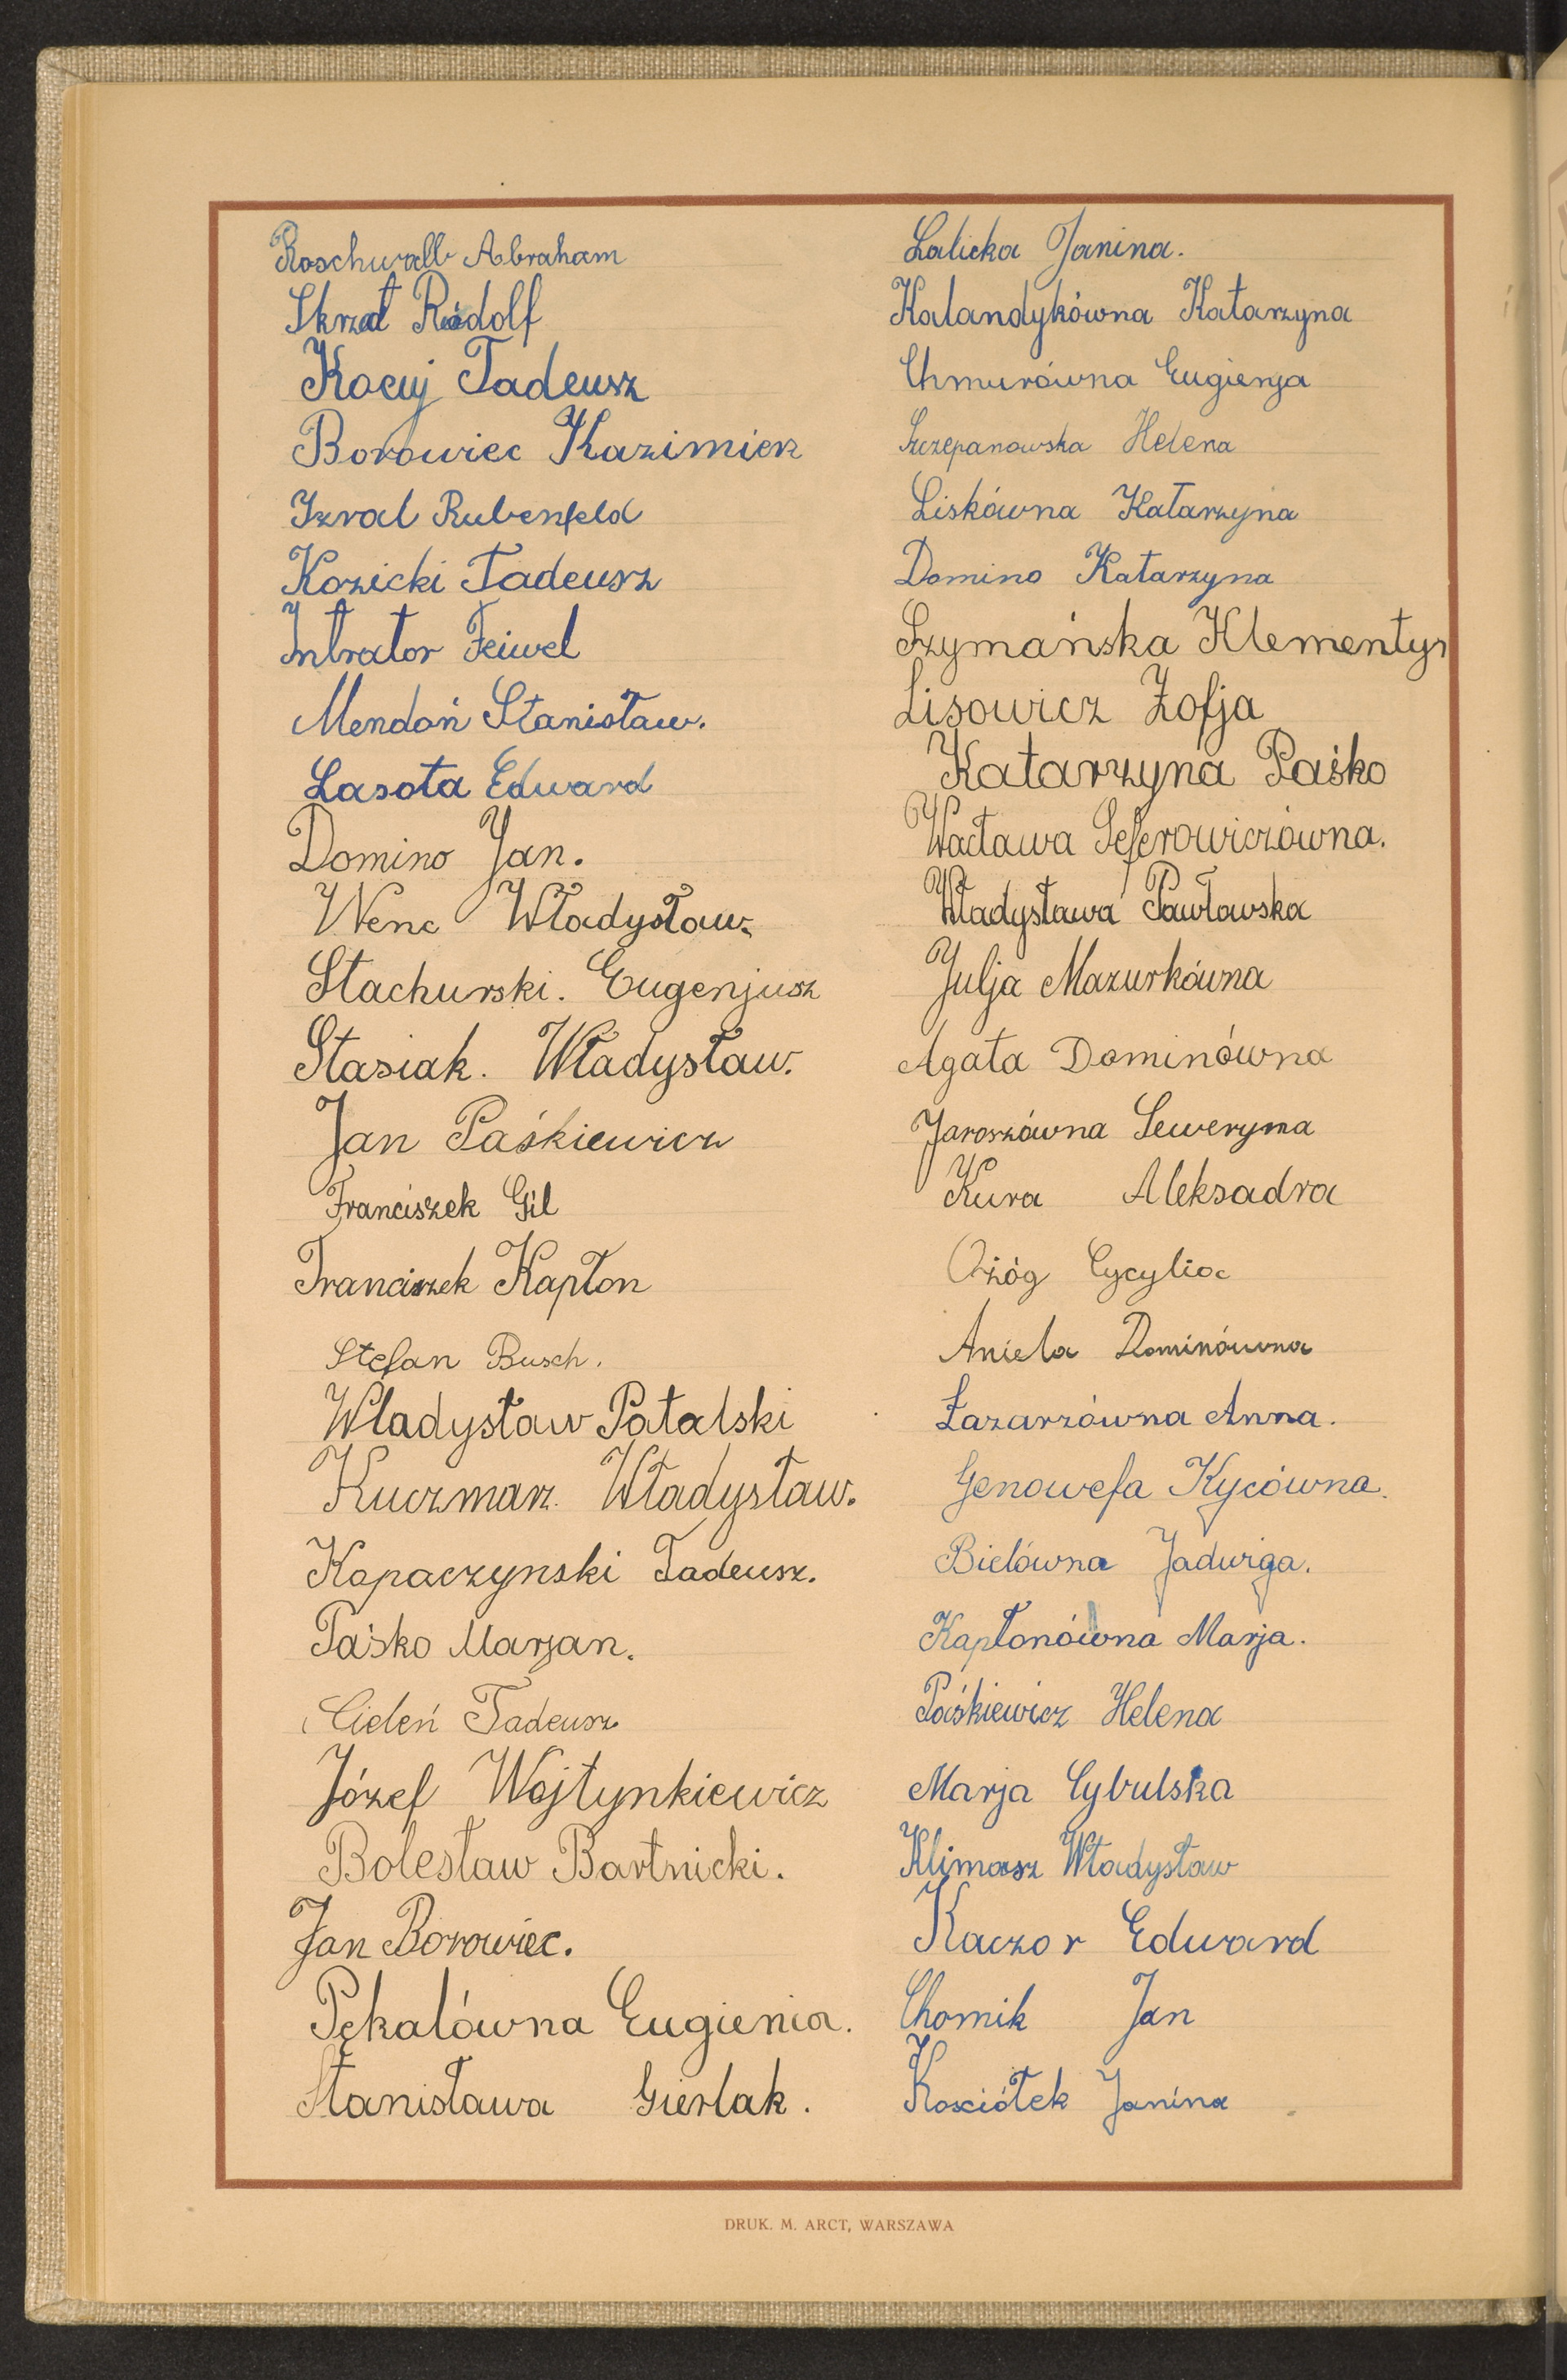 Roschwalb Abraham
Skrzat Rudolf
Kocuj Tadeusz
Borowiec Kazimierz
Izral Rubenfeld
Kozicki Tadeusz
Intrator Feiwel
Mendoń Stanisław.
Lasota Edward
Domino Jan.
Wenc Władysław.
Stachurski. Eugenjusz
Stasiak. Władysław.
Jan Paśkiewicz
Franciszek Gil
Franciszek Kapłon
Stefan Busch.
Władysław Patalski
Kuczmarz. Władysław.
Kopaczynski Tadeusz.
Paśko Marjan.
Cieleń Tadeusz
Józef Wojtynkiewicz
Bolesław Bartnicki.
Jan Borowiec.
Pękalówna Eugienia.
Stanisława Gierlak.
Lalicka Janina.
Kalandykówna Katarzyna
Chmurówna Eugienja
Szczepanowska Helena
Liskówna Katarzyna
Domino Katarzyna
Szymańska Klementyn
Lisowicz Zofja
Katarzyna Paśko
Wacława Seferowiczówna.
Władysława Pawłowska
Julja Mazurkówna
Agata Dominówna
Jaroszówna Seweryna
Kura Aleksadra
Ożóg Cycylia
Aniela Dominówna
Łazarzówna Anna.
Genowefa Kycówna.
Bielówna Jadwiga.
Kapłonówna Marja.
Paśkiewicz Helena
Marja Cybulska
Klimasz Władysław
Kaczor Edward
Chomik Jan
Kosciółek Janina
DRUK. M. ARCT, WARSZAWA